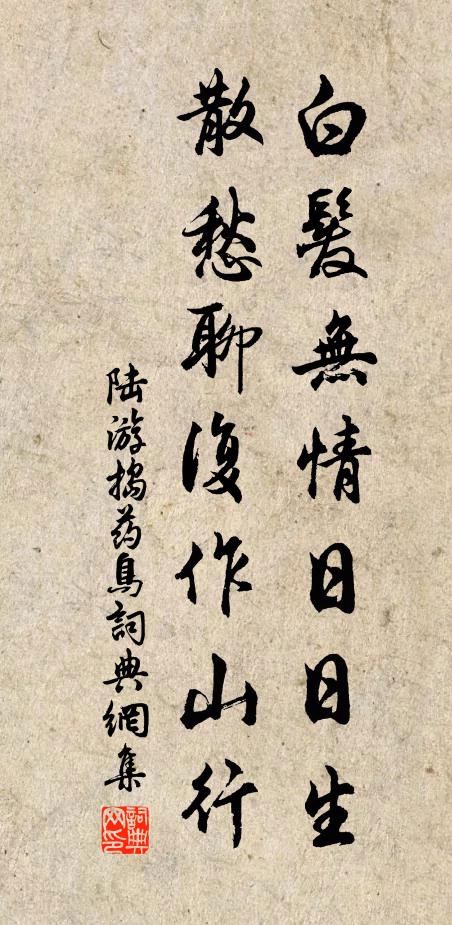 白髮無情日日生
散愁聊復作山行
陆游搗药鳥詞典網集
詞典网印